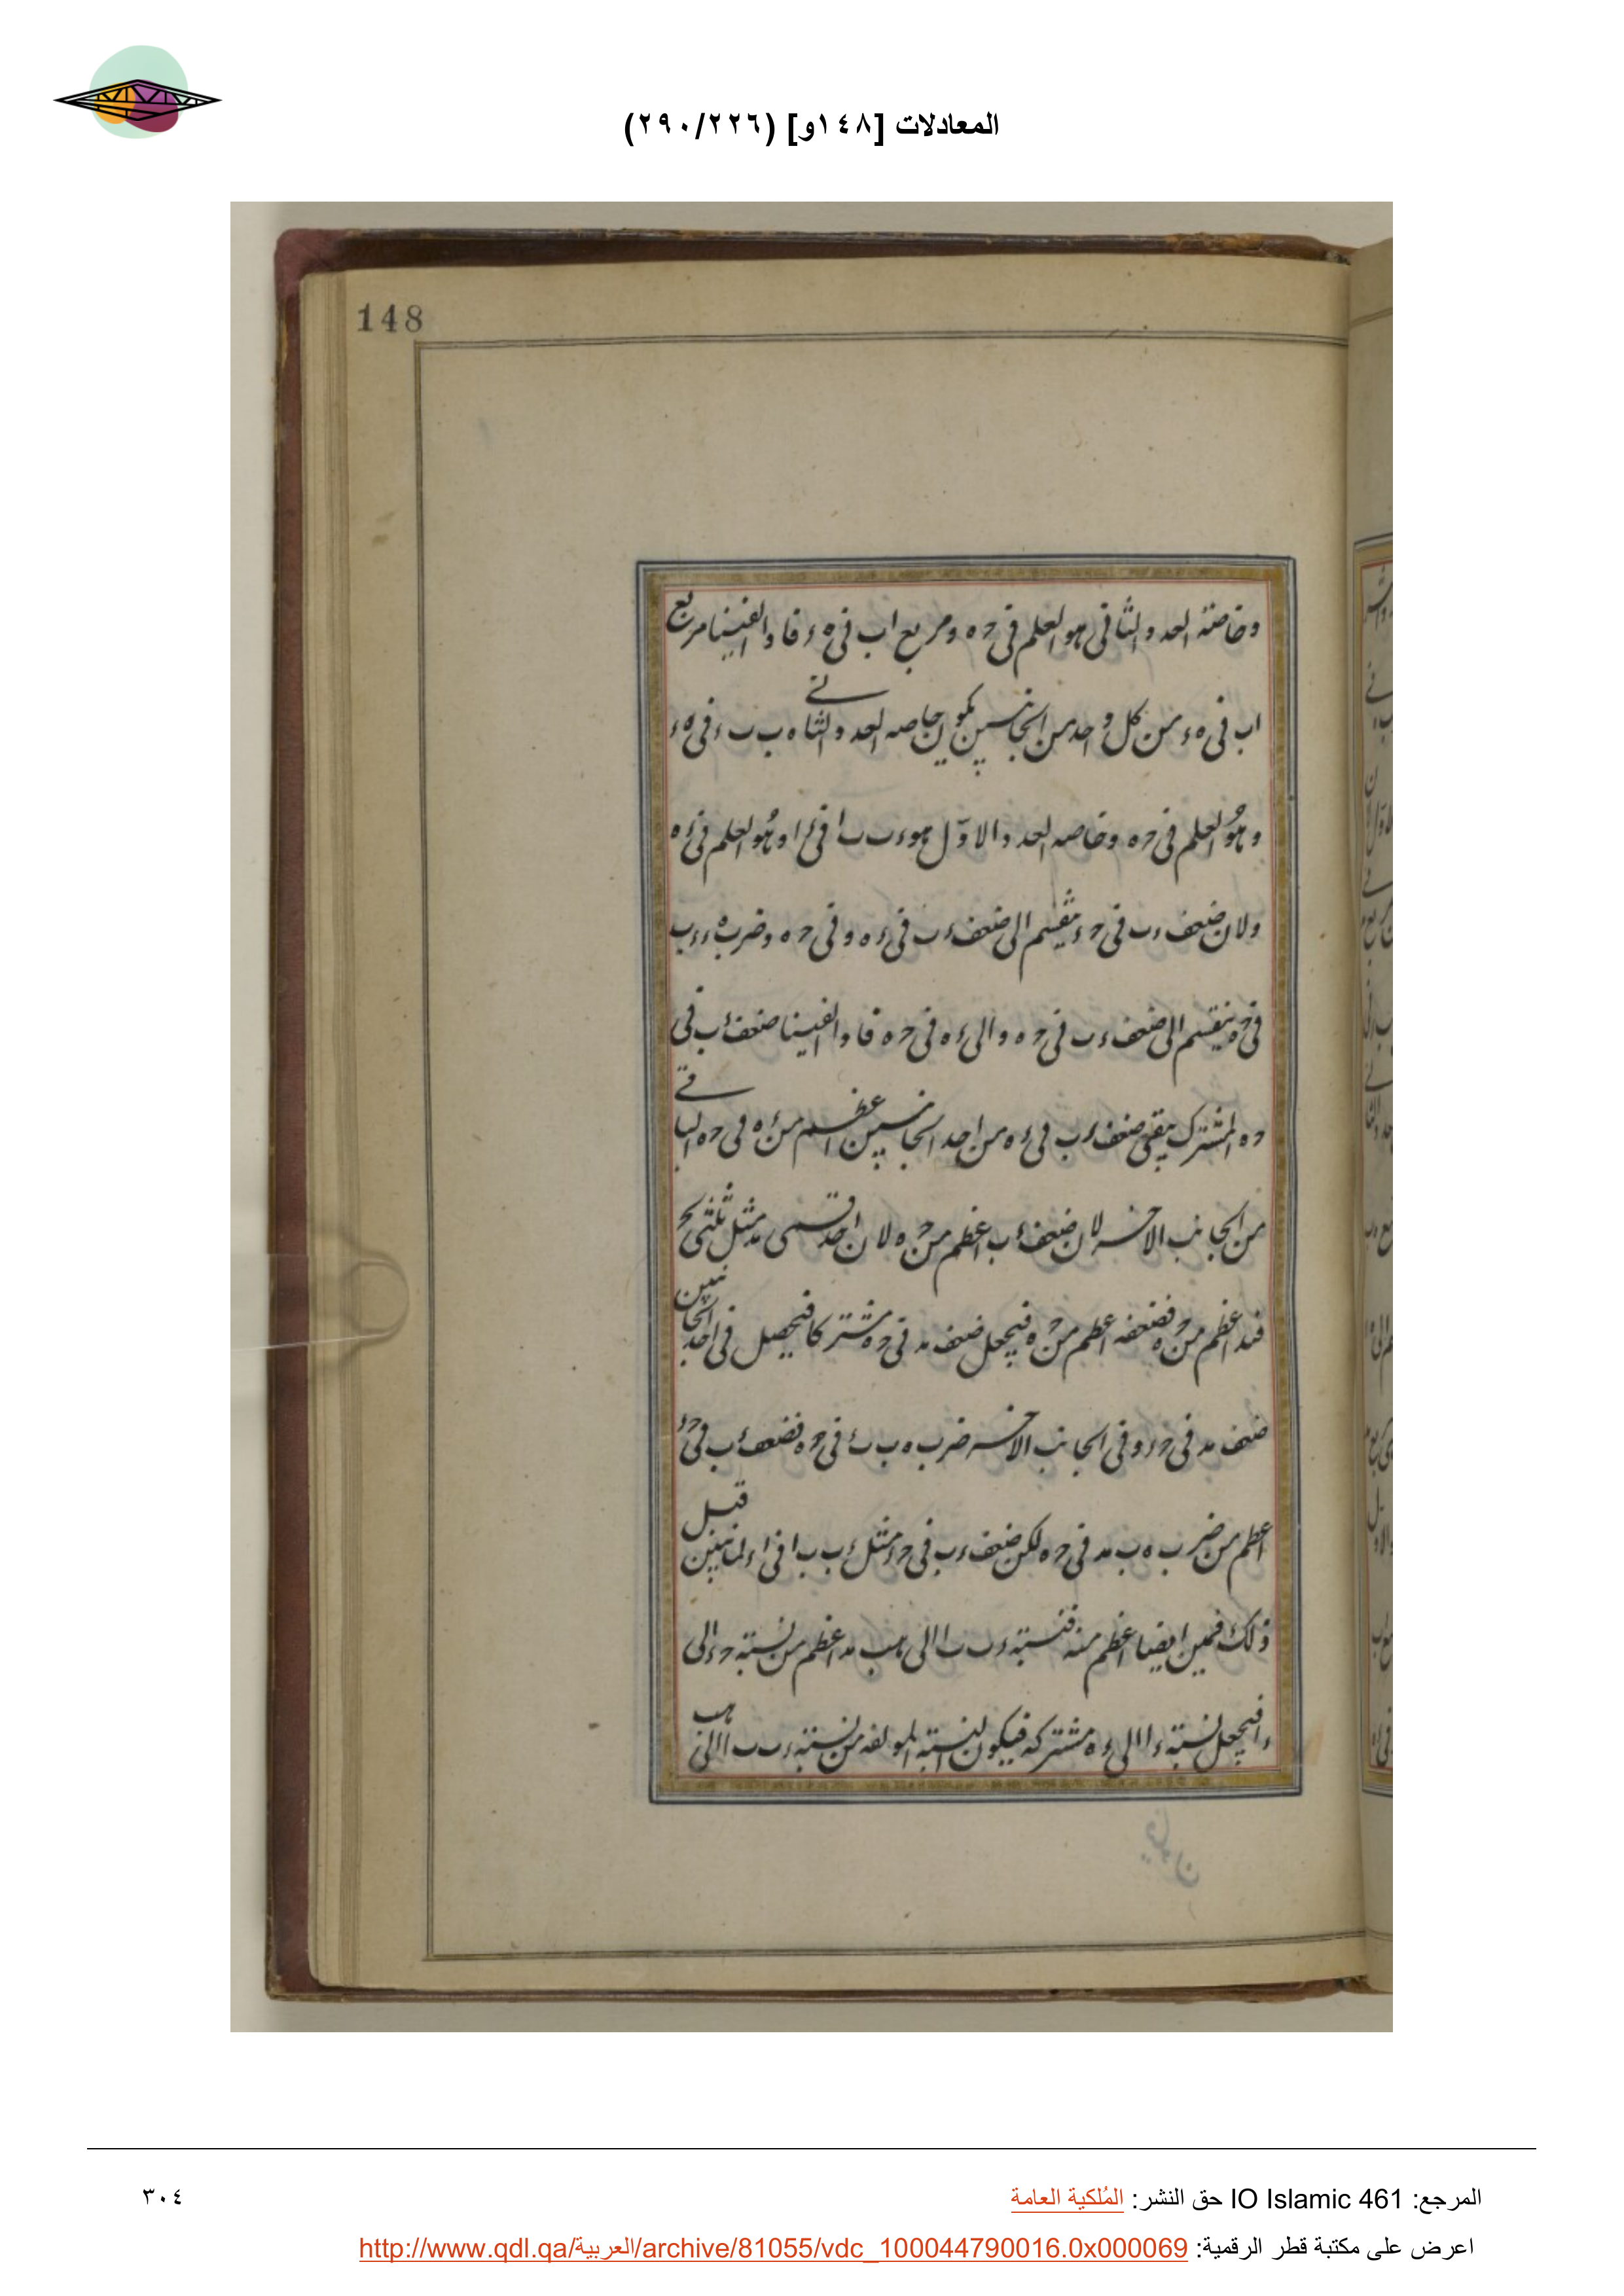 المعادلات [١٤٨و] (٢٩٠/٢٢٦)
148
وخاصته العدد الثاني هو العلم في حه ومربع اب في ه ء فاذا الفينا مربع
اب في ه ء من كل واحد من الجانبين يكون خاصه العدد الثاني ه ب ب ء في ه ء
وهو العلم في حه وخاصه العدد الاول هو ء ب ب ا في ء ا وهو العلم في ء ه
ولان ضعف ء ب في ح ء ينقسم الى ضعف ء ب في ء ه وفي ح ه وضرب ه ء ء ب
في حه ينقسم الى ضعف ء ب في ح ه والى ء ه في ح ه فاذا الفينا ضعف ء ب في
ح ه المشترك يبقى ضعف ء ب في ء ه من احد الجانبين اعظم من ء ه في ح ه الباقي
من الجانب الاخر لان ضعف ء ب اعظم من ح ه لان احد قسمى مد مثل ثلثى
اعظم من ح ه فضعفه اعظم من ح ه فيجعل ضعف مد في ح ه مشتركا فيحصل في احد الجانبين
ضعف مد في ح ء وفي الجانب الاخر ضرب ه ب ب ء في ح ه فضعف ء ب في ح ء
اعظم من ضرب ه ب مد في ح ه لكن ضعف ء ب في ح ء مثل ء ب ب ا في ا ء لما تبين قبل
ذلك ايضا اعظم منه فنسبة ء ب ب ا الى ه ب مد اعظم من نسبة ح ء الى
ء ا فيجعل نسبة ء ا الى ء ه مشتركه فيكون النسبة المولفه من نسبة ء ب ب ا الى ه ب
فيكون
المرجع: IO Islamic 461 حق النشر: المُلكية العامة
٣٠٤
اعرض على مكتبة قطر الرقمية: http://www.qdl.qa/العربية/archive/81055/vdc_100044790016.0x000069